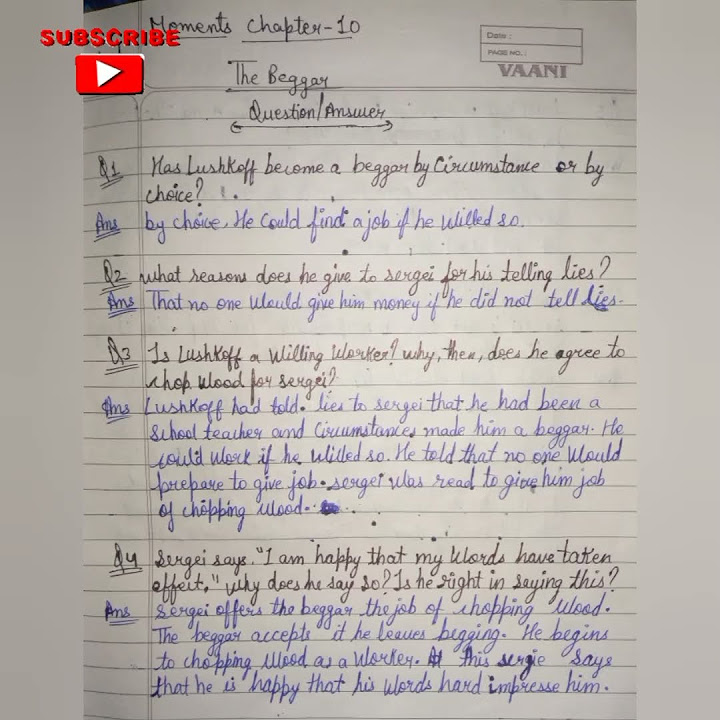 Moments Chapter-10
SUBSCRIBE
Date :
PAGE NO.:
VAANI
The Beggar
Question/Answer
Q1 Has Lushkoff become a beggar by Circumstance or by
choice?
Ans by choice. He could find a job if he willed so.
Q2 what reasons does he give to sergei for his telling lies?
Ans That no one would give him money if he did not tell lies.
Q3 Is Lushkoff a willing worker? why, then, does he agree to
chop wood for sergei?
Ans Lushkoff had told. lies to sergei that he had been a
School teacher and Circumstances made him a beggar. He
could work if he willed so. He told that no one would
prepare to give job. sergei was read to give him job
of chopping wood.
Q4 Sergei says. "I am happy that my words have taken
effeit," why does he say so? Is he right in saying this?
Ans Sergei offers the beggar the job of chopping wood.
The beggar accepts it he leaves begging. He begins
to chopping wood as a worker. At this sergie says
that he is happy that his words hard impresse him.